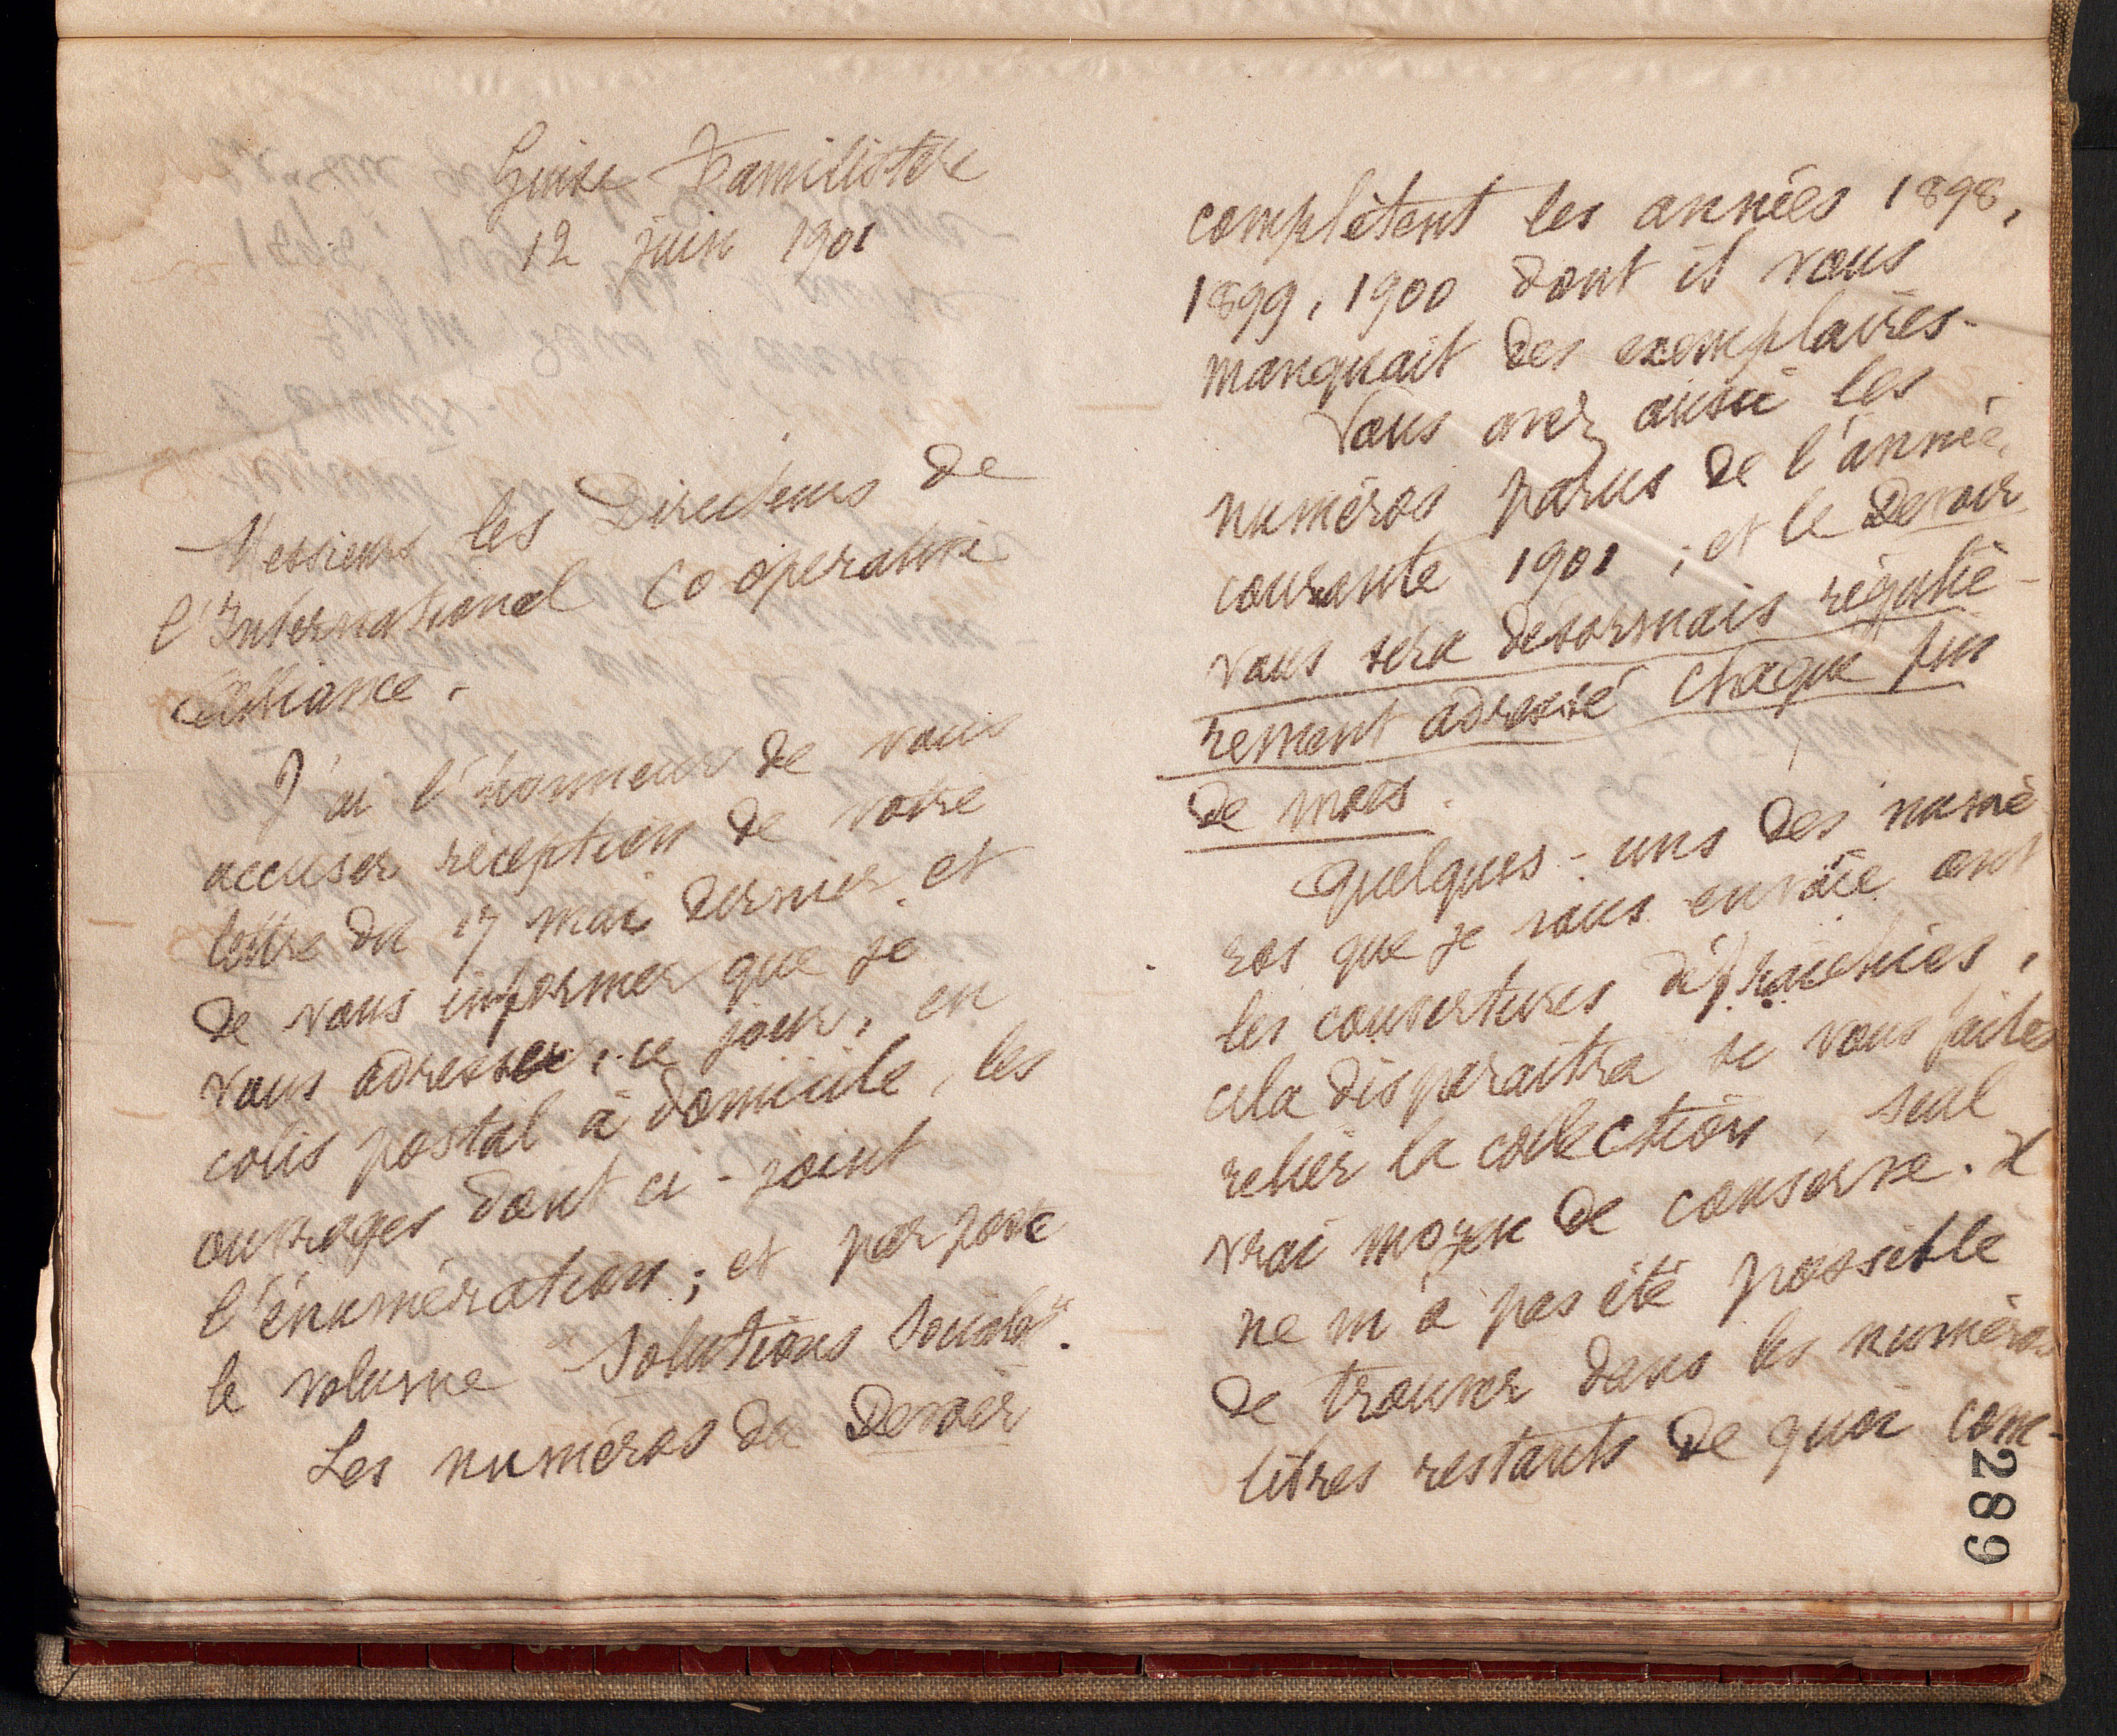 Guise Familistère
12 juin 1901
Messieurs les Directeurs de
l'International Cooperative
Alliance.
J'ai l'honneur de vous
accuser reception de votre
lettre du 17 mai dernier et
de vous informer que je
vous adresse, ce jour, en
colis postal à domicile, les
ouvrages dont ci-joint
l'énumération; et par poste
le volume "Solutions Sociales".
Les numéros du Devoir
complètent les années 1898,
1899, 1900 dont il vous
manquait des exemplaires.
Vous avez aussi les
numéros parus de l'année
courante 1901; et le Devoir
vous sera désormais réguliè-
rement adressé chaque fin
de mois.
Quelques-uns des numé
ros que je vous envoie ont
les couvertures défraîchies,
cela disparaîtra si vous faites
relier la collection, seul
vrai moyen de conserve. Il
ne m'a pas été possible
de trouver dans les numéros
titres restants de quoi com-
289